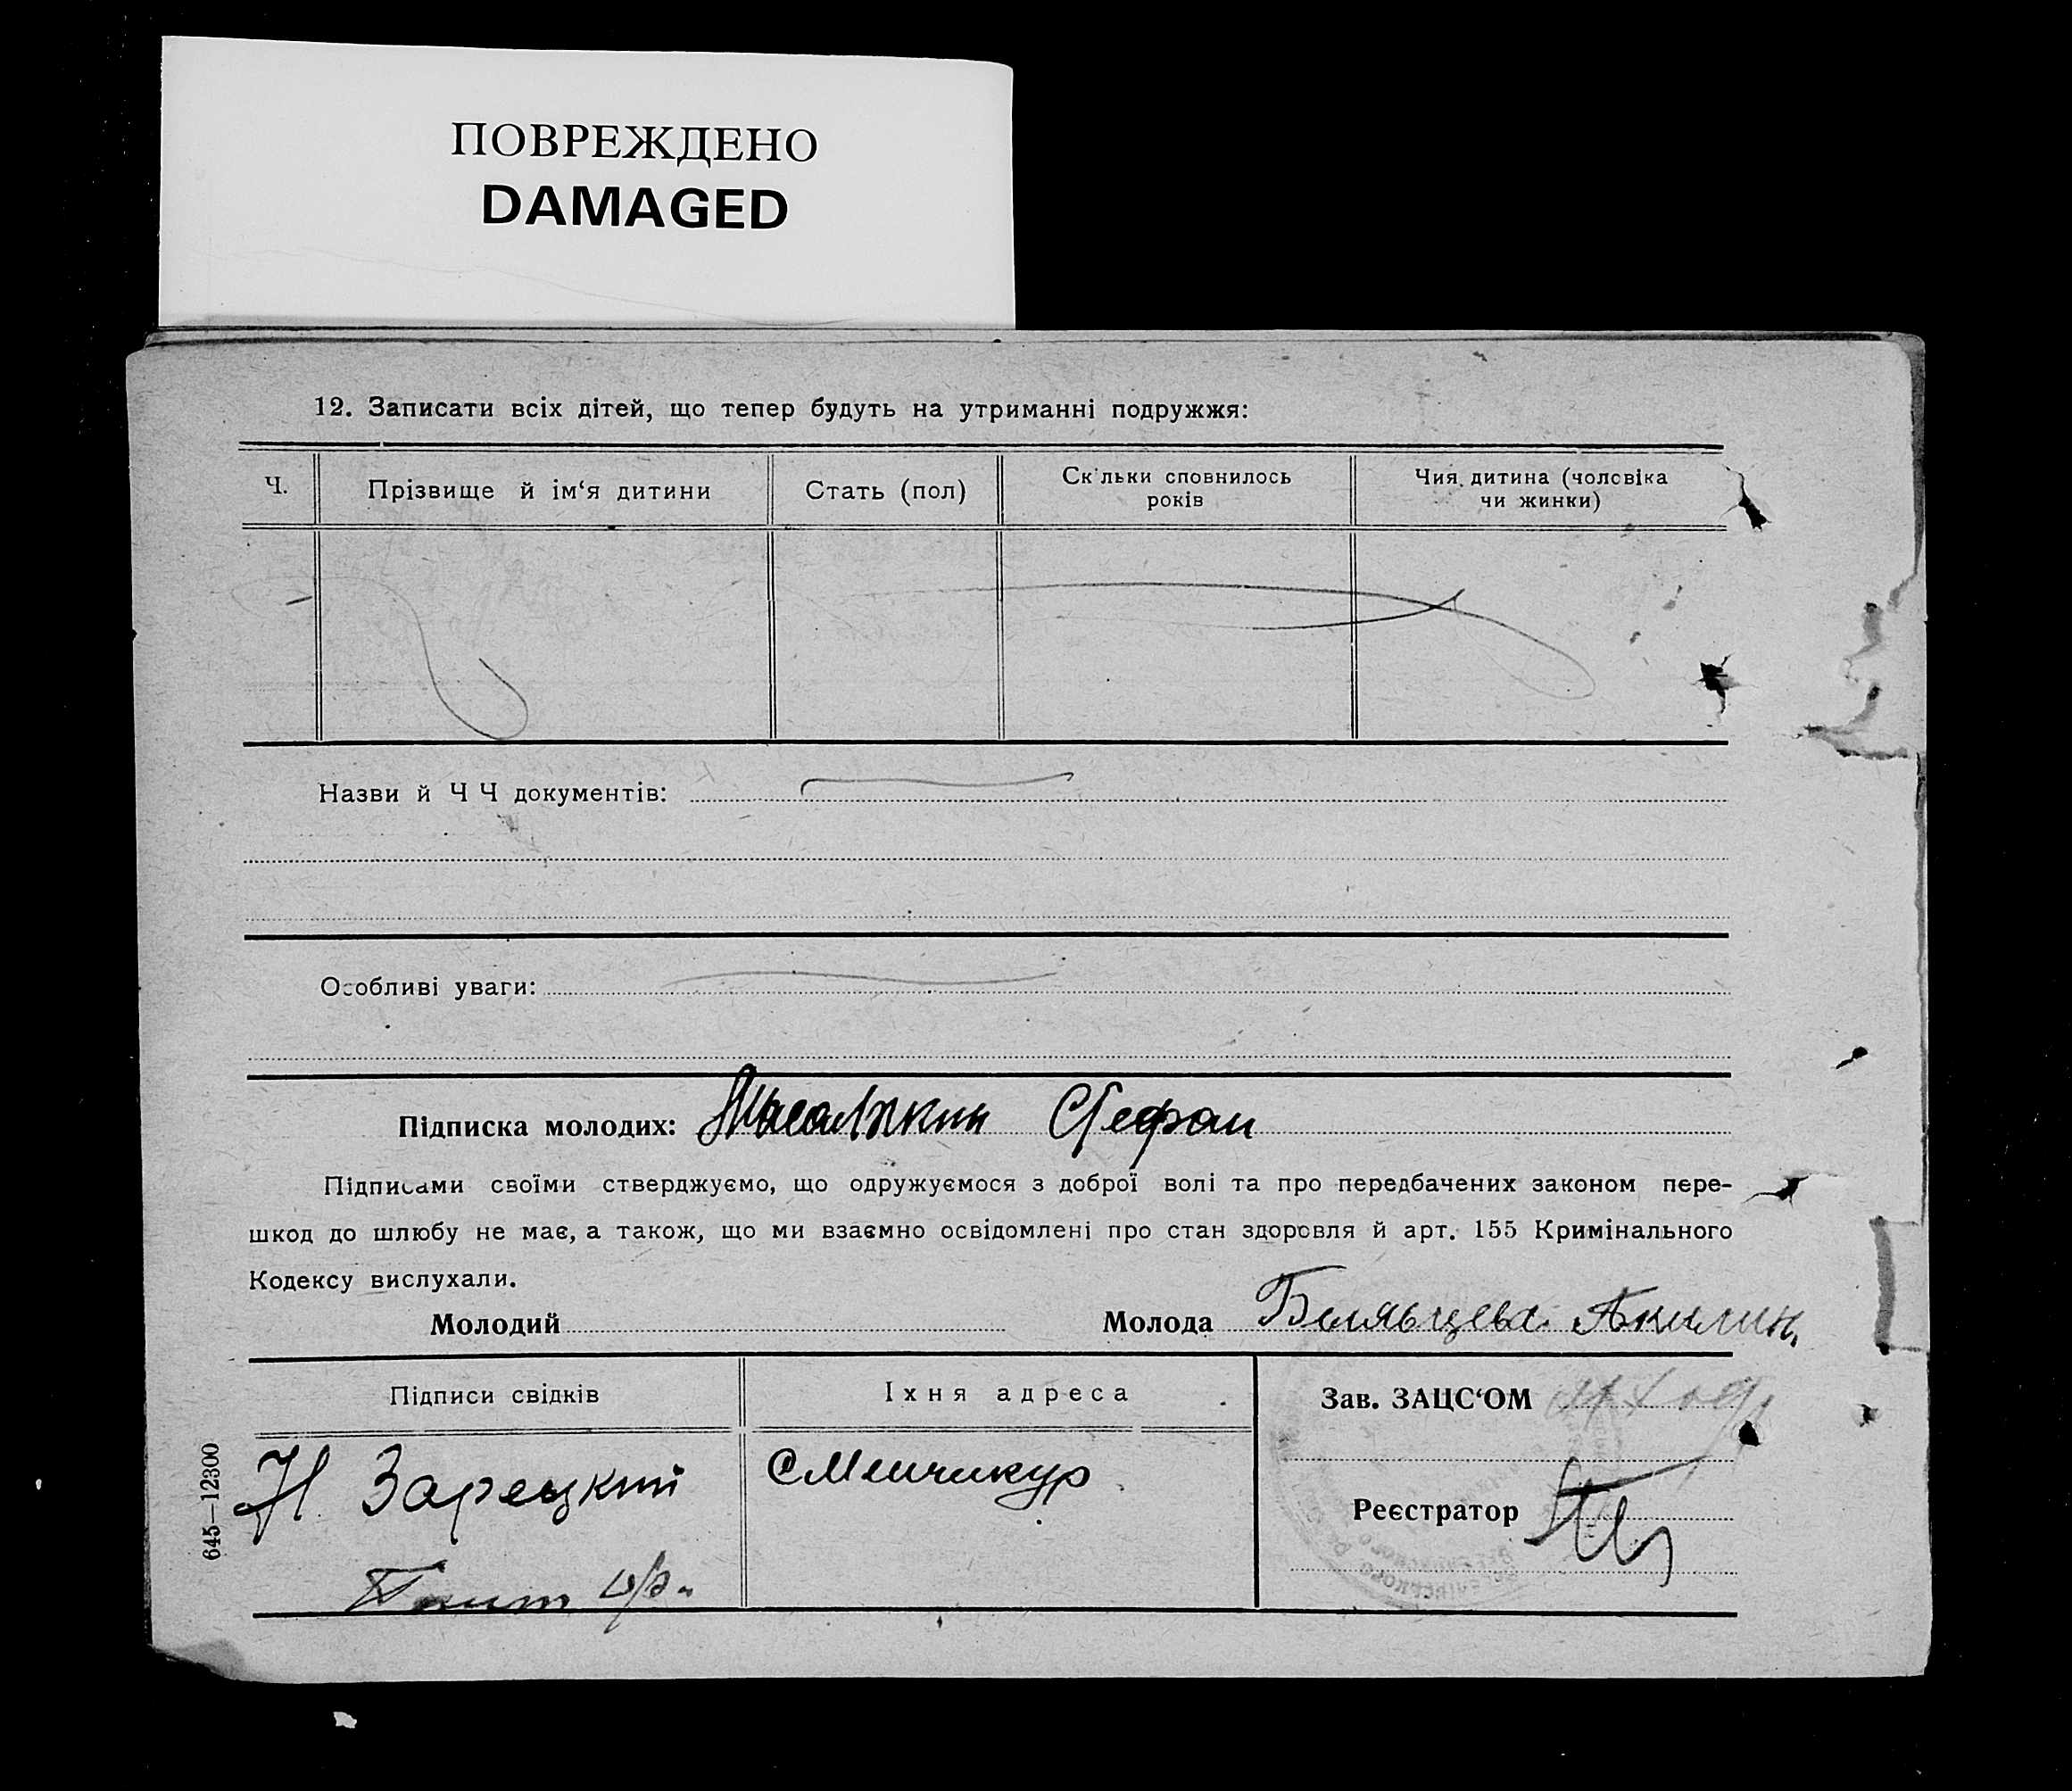 ПОВРЕЖДЕНО
DAMAGED
12. Записати всіх дітей, що тепер будуть на утриманні подружжя:
Ч.
Прізвище й ім‘я дитини
Стать (пол)
Скільки сповнилось
років
Чия дитина (чоловіка
чи жинки)
Назви й Ч Ч документів:
Особливі уваги:
Підписка молодих: Масалыкин Стефан
Підписами своїми стверджуємо, що одружуємося з доброї волі та про передбачених законом пере-
шкод до шлюбу не має, а також, що ми взаємно освідомлені про стан здоровля й арт. 155 Кримінального
Кодексу вислухали.
Молодий
Молода Беляевцева Акилин
Підписи свідків
Їхня адреса
Зав. ЗАЦС‘ОМ
Н Зарецкий
С Менчикур
Реєстратор
645—12300